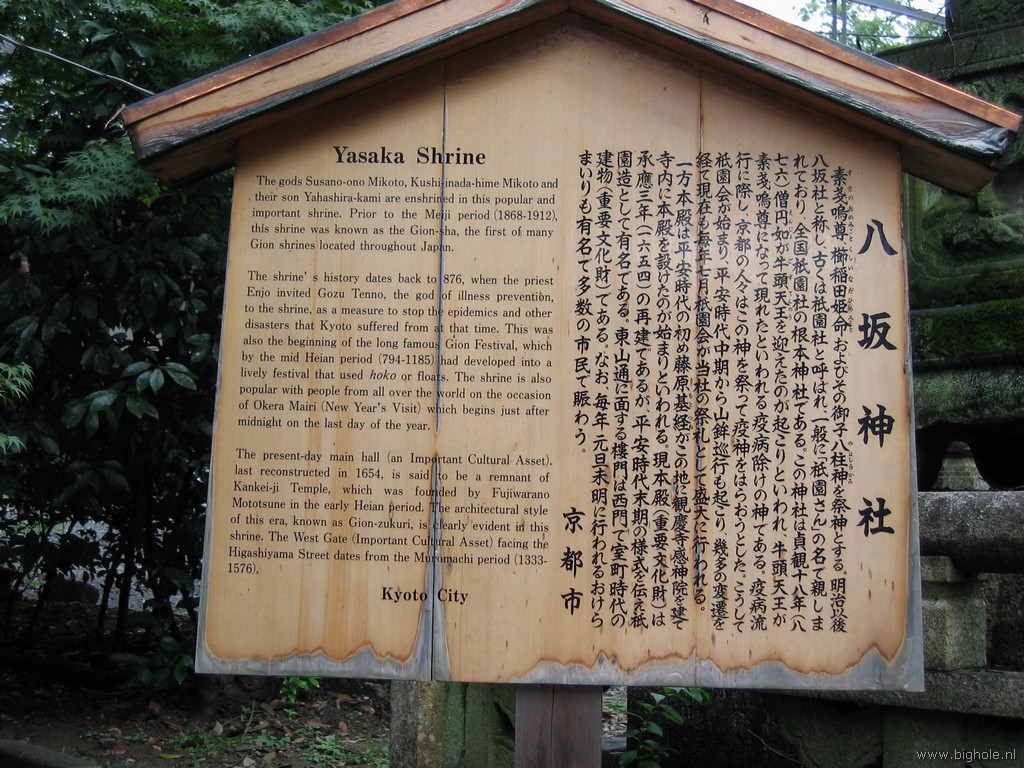 Yasaka Shrine
The gods Susano-ono Mikoto, Kushi-inada-hime Mikoto and
their son Yahashira-kami are enshrined in this popular and
important shrine. Prior to the Meiji period (1868-1912),
this shrine was known as the Gion-sha, the first of many
Gion shrines located throughout Japan.
The shrine's history dates back to 876, when the priest
Enjo invited Gozu Tenno, the god of illness prevention,
to the shrine, as a measure to stop the epidemics and other
disasters that Kyoto suffered from at that time. This was
also the beginning of the long famous Gion Festival, which
by the mid Heian period (794-1185) had developed into a
lively festival that used hoko or floats. The shrine is also
popular with people from all over the world on the occasion
of Okera Mairi (New Year's Visit) which begins just after
midnight on the last day of the year.
The present-day main hall (an Important Cultural Asset),
last reconstructed in 1654, is said to be a remnant of
Kankei-ji Temple, which was founded by Fujiwarano
Mototsune in the early Heian period. The architectural style
of this era, known as Gion-zukuri, is clearly evident in this
shrine. The West Gate (Important Cultural Asset) facing the
Higashiyama Street dates from the Muromachi period (1333-
1576).
Kyoto City
八坂神社
素戔嗚尊、櫛稲田姫命、およびその御子八柱神を祭神とする。明治以後
八坂社と称し、古くは祇園社と呼ばれ、一般に祇園さんの名で親しま
れており、全国祇園社の根本神社である。この神社は貞観十八年(八
七六)僧円如が牛頭天王を迎えたのが起こりといわれ、牛頭天王が
素戔嗚尊になって現れたといわれる疫病除けの神である。疫病流
行に際し、京都の人々はこの神を祭って疫神をはらおうとした。こうして
祇園会が始まり、平安時代中期から山鉾巡行も起こり、幾多の変遷を
経て現在も毎年七月祇園会が当社の祭礼として盛大に行われる。
一方本殿は平安時代の初め藤原基経がこの地に観慶寺感神院を建て
寺内に本殿を設けたのが始まりといわれる。現本殿(重要文化財)は
承應三年(一六五四)の再建であるが、平安時代末期の様式を伝え祇
園造として有名である。東山通に面する樓門は西門で室町時代の
建物(重要文化財)である。なお、毎年元旦未明に行われるおけら
まいりも有名で多数の市民で賑わう。
京都市
www.bighole.nl